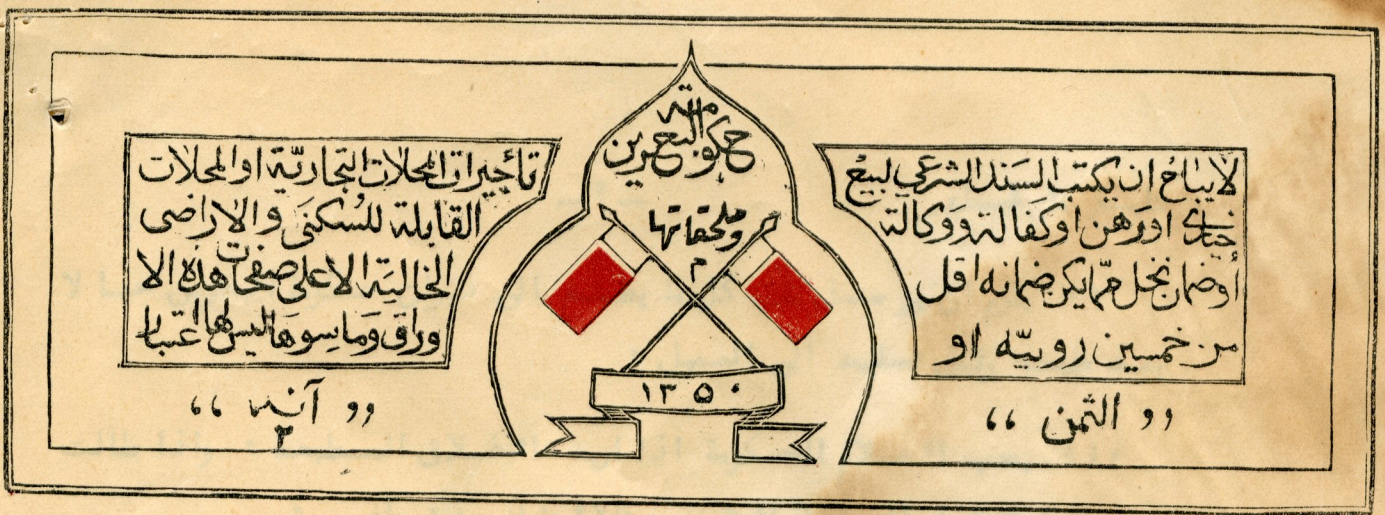 حكومة البحرين
وملحقاتها
م
١٣٥٠
لا يباح ان يكتب السند الشرعي لبيع
خياري او رهن او كفالة ووكالة
أو ضمان نخل مما يكن ضمانه اقل
من خمسين روبيّه او
,, الثمن ،،
تأجيرات المحلات التجاريّة او المحلات
القابلة للسُكنى والاراضى
الخالية الا على صفحات هذه الا
وراق وما سوها ليس لها اعتبار
,, آنه ٢ ،،